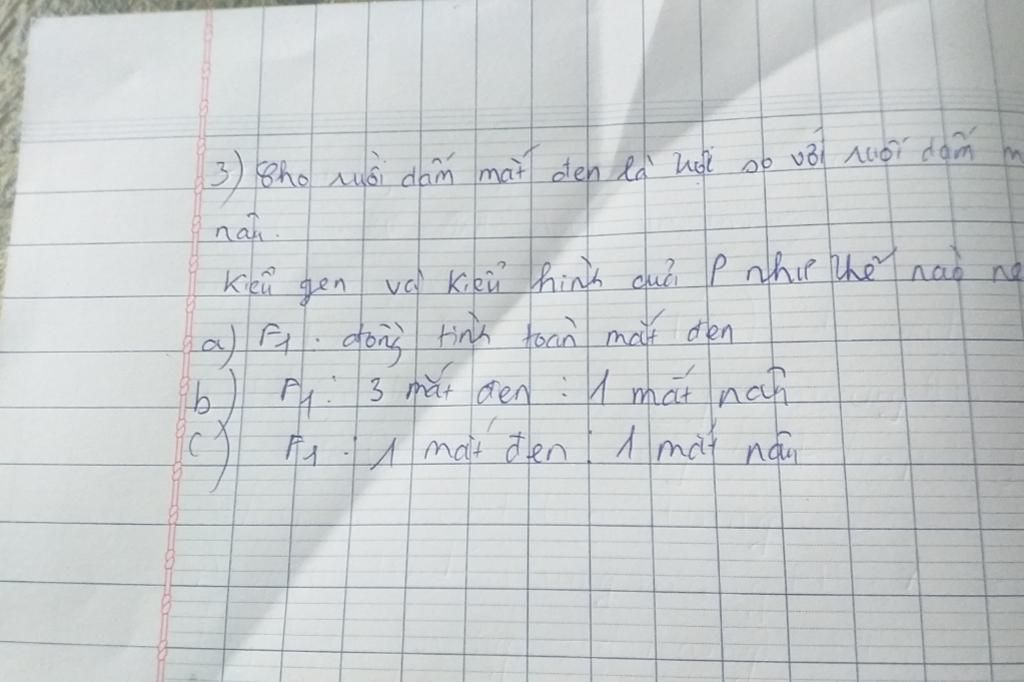 3) Cho ruồi dấm mắt đen là trội so với ruồi dấm
nâu.
Kiểu gen và kiểu hình của P như thế nào
a) F1: đồng tính toàn mắt đen
b) F1: 3 mắt đen : 1 mắt nâu
c) F1: 1 mắt đen : 1 mắt nâu